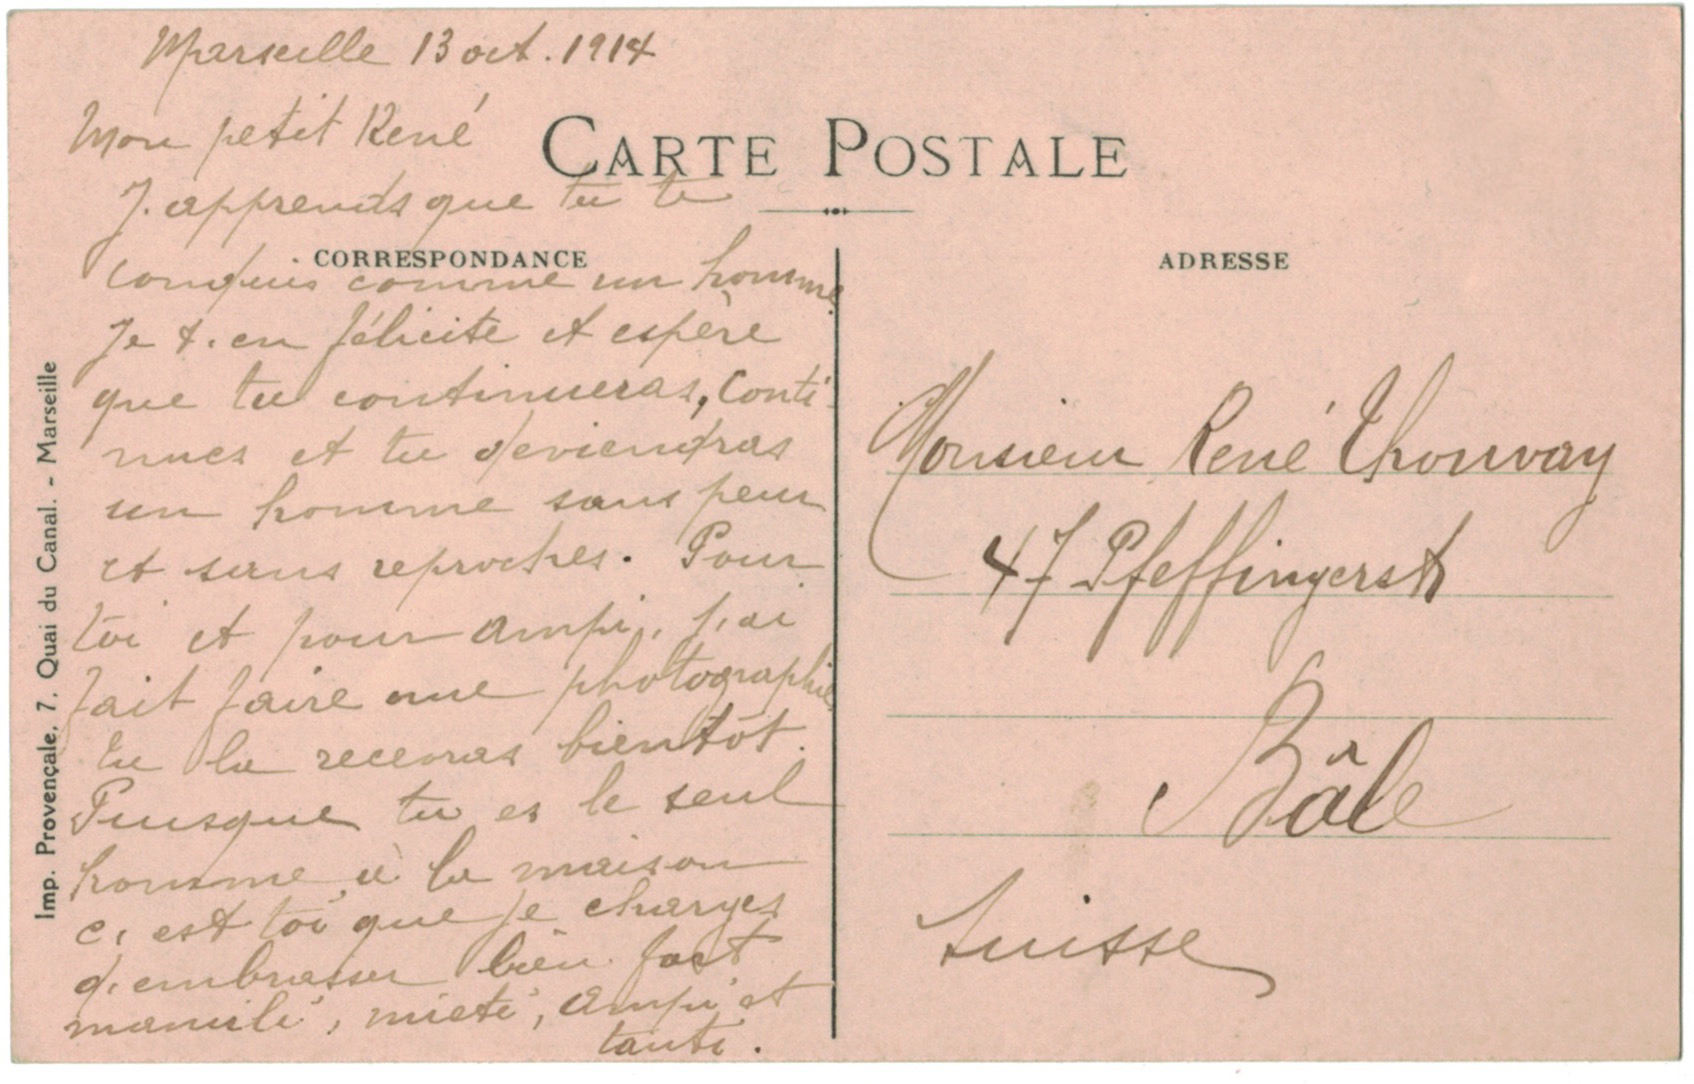 Marseille 13 oct. 1914
Mon petit René
CARTE POSTALE
J. apprends que tu te
CORRESPONDANCE
conduis comme un homme
Je t. en félicite et espère
que tu continueras, Conti-
nues et tu deviendras
un homme sans peur
et sans reproches. Pour
toi et pour Ampi, j'ai
fait faire une photographie,
tu la recevras bientôt.
Puisque tu es le seul
homme à la maison
c, est toi que je charges
d, embrasser bien fort
mamili, mieti, Ampi et
tanti.
Imp. Provençale, 7, Quai du Canal. - Marseille
ADRESSE
Monsieur René Thouvay
47 Pfeffingerst
Bâle
Suisse